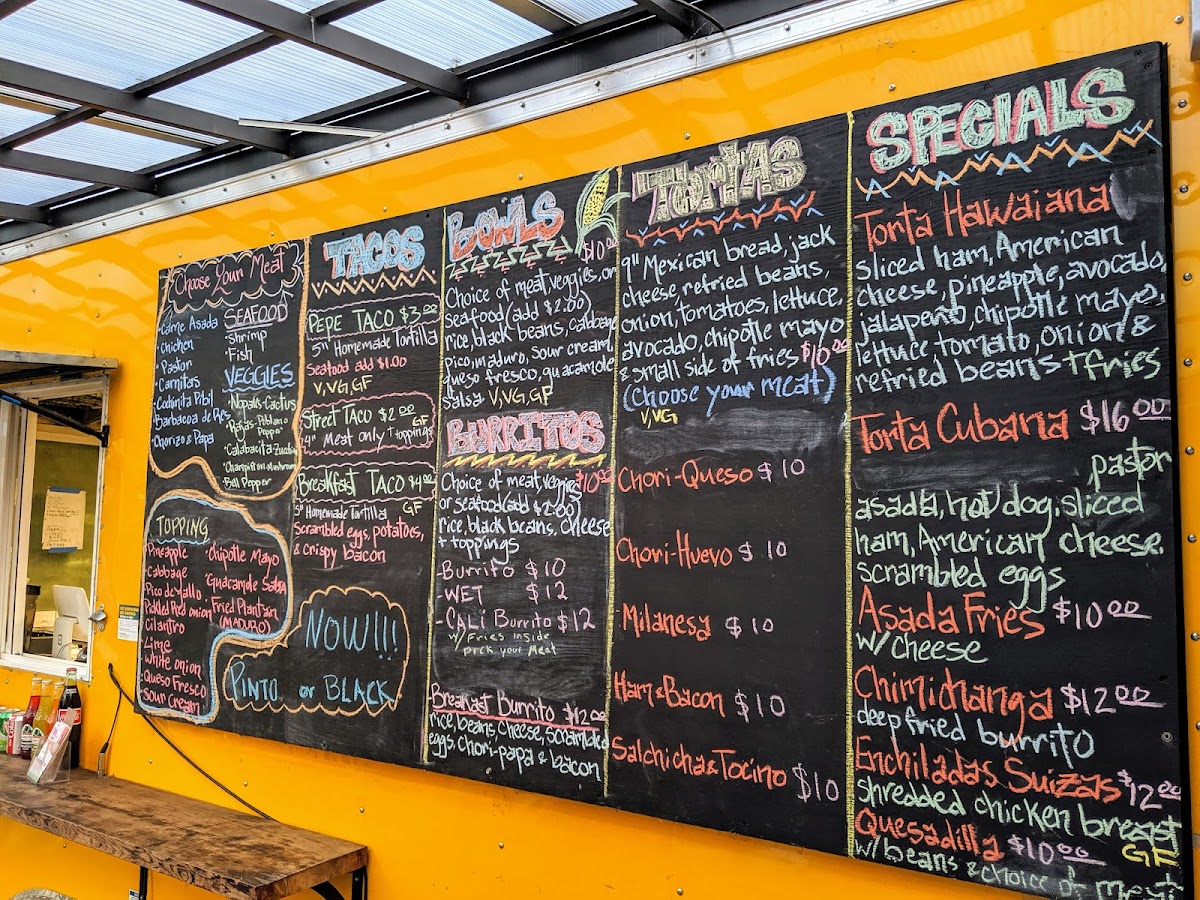 Choose Your Meat
·Carne Asada
·Chicken
·Pastor
·Carnitas
·Cochinita Pibil
·Barbacoa de Res
·Chorizo & Papa
SEAFOOD
·Shrimp
·Fish
VEGGIES
·Nopales-Cactus
·Rajas-Poblano
Pepper
·Calabacita-Zucchini
·Champiñon-Mushroom
·Bell Pepper
TOPPING
·Pineapple
·Cabbage
·Pico de Gallo
·Pickled Red onion
·Cilantro
·Lime
·White onion
·Queso Fresco
·Sour Cream
·Chipotle Mayo
·Guacamole Salsa
·Fried Plantain
(MADURO)
TACOS
PEPE TACO $3.00
5" Homemade Tortilla
seafood add $1.00
V,VG,GF
Street TACO $2.00
GF
4" Meat only + toppings
Breakfast TACO $4.00
5" Homemade Tortilla GF
scrambled eggs, potatoes,
& crispy bacon
NOW!!!
PINTO or BLACK
BOWLS
$10.00
Choice of meat, veggies, or
seafood (add $2.00)
rice, black beans, cabbage
pico, maduro, sour cream,
queso fresco, guacamole
salsa V,VG,GF
BURRITOS
Choice of meat, veggies $10.00
or seafood (add $2.00)
rice, black beans, cheese
+ toppings
-Burrito $10
-WET $12
-CALI Burrito $12
w/ Fries inside
pick your Meat
Breakfast Burrito $12.00
rice, beans, cheese, scrambled
eggs, chori-papa & bacon
TORTAS
9" Mexican bread, jack
cheese, refried beans,
onion, tomatoes, lettuce,
avocado, chipotle mayo
& small side of fries $10.00
(Choose your meat)
V,VG
Chori-Queso $10
Chori-Huevo $10
Milanesa $10
Ham & Bacon $10
Salchicha & Tocino $10
SPECIALS
Torta Hawaiana
sliced ham, American
cheese, pineapple, avocado,
jalapeño, chipotle mayo,
lettuce tomato, onion &
refried beans + fries
Torta Cubana $16.00
pastor
asada, hot dog, sliced
ham, American cheese,
scrambled eggs
Asada Fries $10.00
w/ cheese
Chimichanga $12.00
deep fried burrito
Enchiladas Suizas $12.00
shredded chicken breast
Quesadilla $10.00 GF
w/ beans & choice of meat